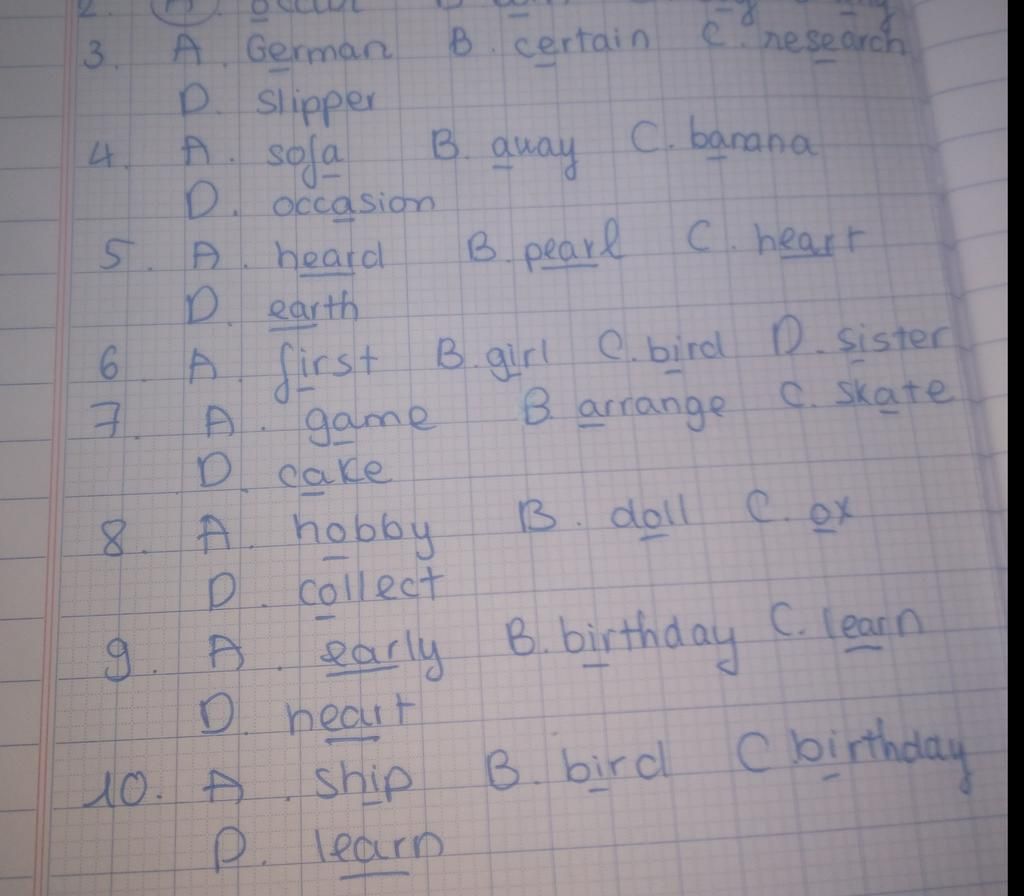 2. A. occur B
3. A. German B. certain C. research
D. slipper
4. A. sofa B. away C. banana
D. occasion
5. A. heard B. pearl C. heart
D. earth
6 A. first B. girl C. bird D. sister
7. A. game B. arrange C. skate
D. cake
8. A. hobby B. doll C. ox
D. collect
9. A. early B. birthday C. learn
D. heart
10. A. ship B. bird C birthday
D. learn